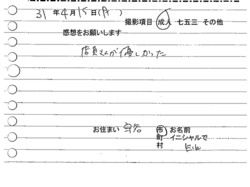 31年4月15日(月)
撮影項目 成人 七五三 その他
感想をお願いします
店員さんが優しかった
お住まい 市 お名前
町 イニシャルで
村